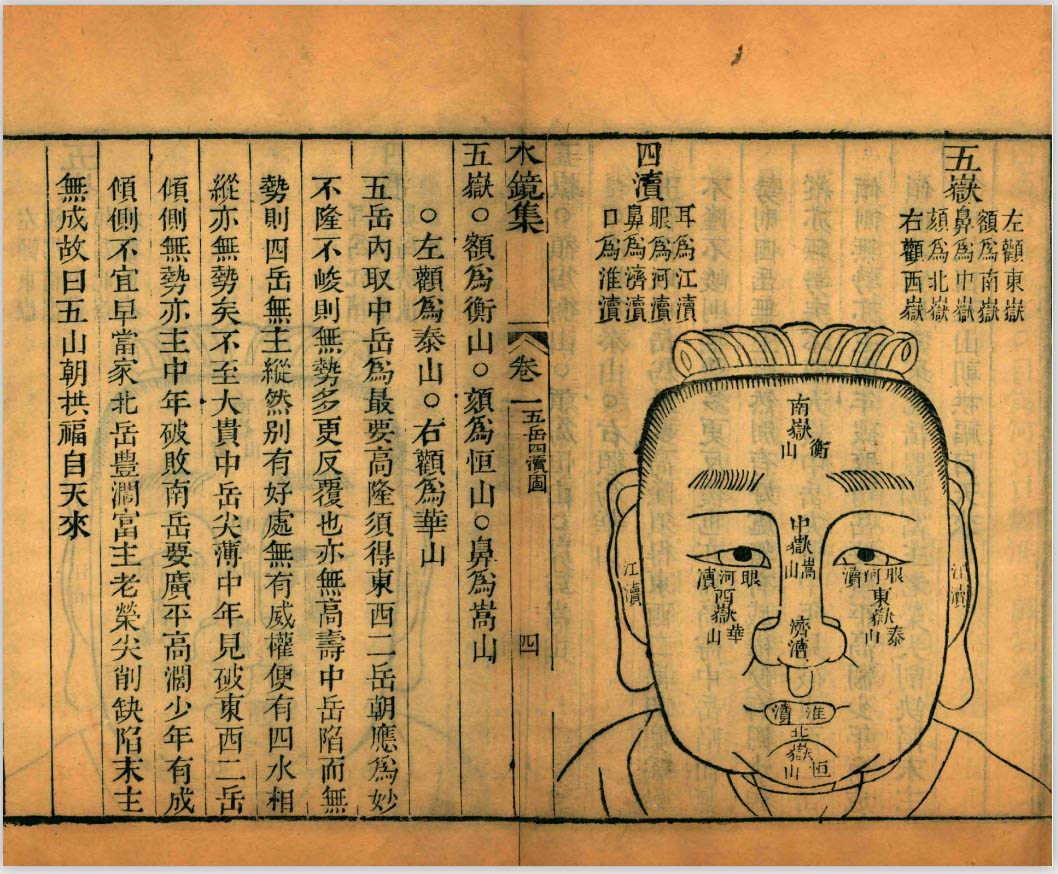 五嶽
左顴東嶽
額爲南嶽
鼻爲中嶽
頦爲北嶽
右顴西嶽
四瀆
耳爲江瀆
眼爲河瀆
鼻爲濟瀆
口爲淮瀆
南嶽衡山
中嶽嵩山
眼河瀆
眼河瀆
東嶽泰山
西嶽華山
江瀆
江瀆
濟瀆
淮瀆
北嶽恒山
水鏡集
卷一
五岳四瀆圖
四
五嶽○額爲衡山○頦爲恒山○鼻爲嵩山
○左顴爲泰山○右顴爲華山
五岳內取中岳爲最要高隆須得東西二岳朝應爲妙
不隆不峻則無勢多更反覆也亦無高壽中岳陷而無
勢則四岳無主縱然别有好處無有威權便有四水相
縱亦無勢矣不至大貴中岳尖薄中年見破東西二岳
傾側無勢亦主中年破敗南岳要廣平高濶少年有成
傾側不宜早當家北岳豊濶富主老榮尖削缺陷末主
無成故曰五山朝拱福自天來